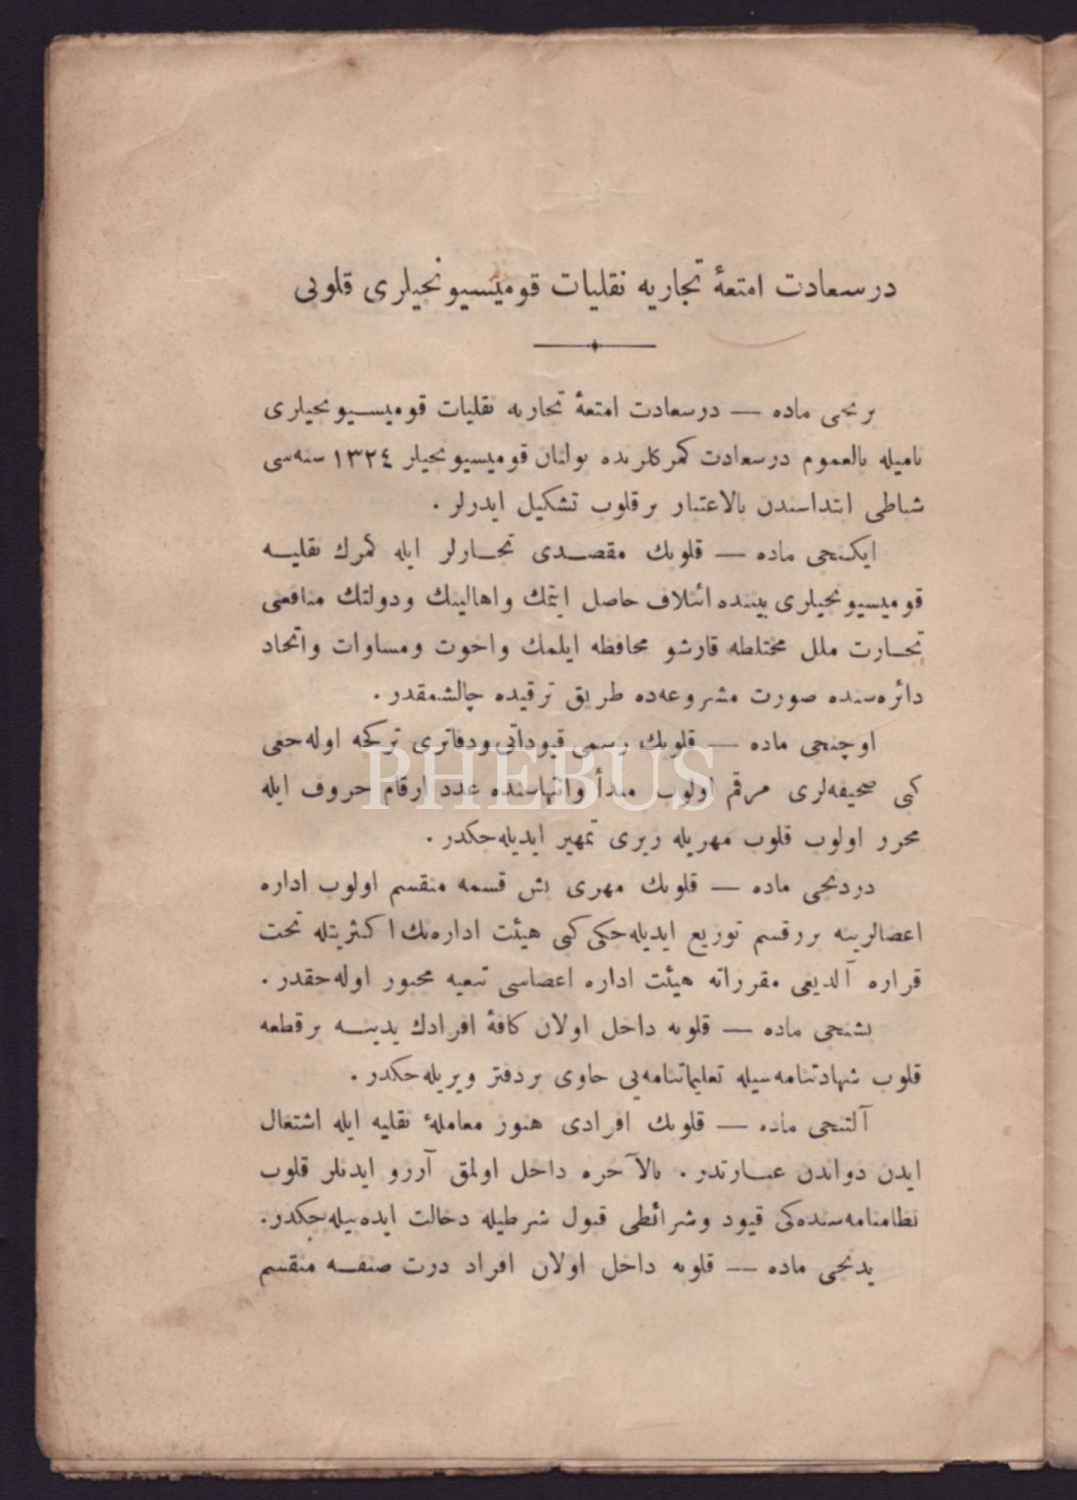 درسعادت امتعهٔ تجاریه نقلیات قومیسیونجیلری قلوبی
برنجی ماده — درسعادت امتعهٔ تجاریه نقلیات قومیسیونجیلری
نامیله بالعموم درسعادت كمركلرنده بولنان قومیسیونجیلر ١٣٢٤ سنه‌سی
شباطی ابتداسندن بالاعتبار برقلوب تشكیل ایدرلر .
ایكنجی ماده — قلوبك مقصدی تجارلر ایله كمرك نقلیه
قومیسیونجیلری بیننده ائتلاف حاصل ایتمك واهالینك ودولتك منافعی
تجارت ملل مختلطه قارشو محافظه ایلمك واخوت ومساوات واتحاد
دائره‌سنده صورت مشروعه‌ده طریق ترقیده چالشمقدر .
اوچنجی ماده — قلوبك رسمی قیوداتی ودفاتری تركجه اوله‌جغی
كبی صحیفه‌لری مرقم اولوب مبدأ وانتهاسنده عدد ارقام حروف ایله
محرر اولوب قلوب مهریله زیری تمهیر ایدیله‌جكدر .
دردنجی ماده — قلوبك مهری بش قسمه منقسم اولوب اداره
اعضالرینه بررقسم توزیع ایدیله‌جكی كبی هیئت اداره‌نك اكثریتله تحت
قراره آلدیغی مقرراته هیئت اداره اعضاسی تبعیه مجبور اوله‌جقدر .
بشنجی ماده — قلوبه داخل اولان كافهٔ افرادك یدینه برقطعه
قلوب شهادتنامه‌سیله تعلیماتنامه‌یی حاوی بردفتر ویریله‌جكدر .
آلتنجی ماده — قلوبك افرادی هنوز معاملهٔ نقلیه ایله اشتغال
ایدن ذواتدن عبارتدر . بالآخره داخل اولمق آرزو ایدنلر قلوب
نظامنامه‌سنده‌كی قیود وشرائطی قبول شرطیله دخالت ایده‌بیله‌جكدر.
یدنجی ماده — قلوبه داخل اولان افراد درت صنفه منقسم
PHEBUS